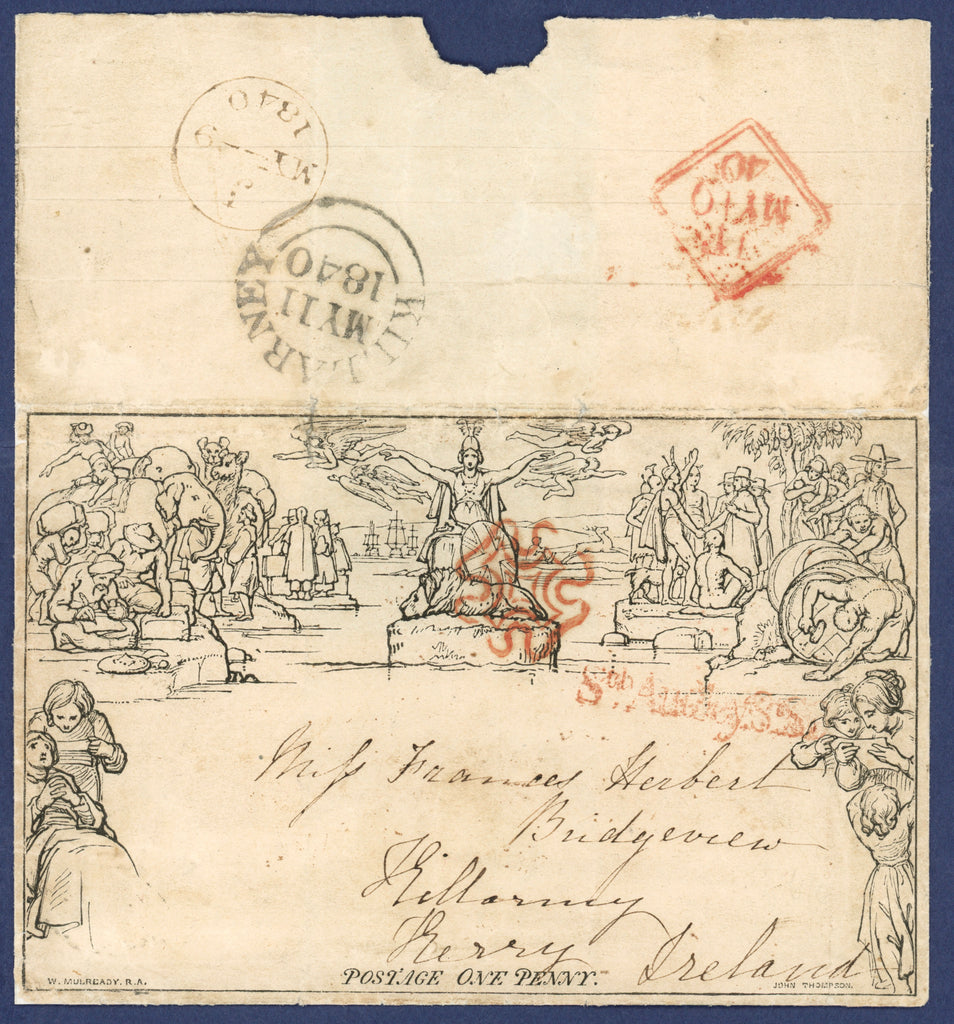 1840
MY 9
KILLARNEY
MY 11
1840
MY 10
40
St. Audley St.
Miss Frances Herbert
Bridgeview
Killarney
Kerry
Ireland
POSTAGE ONE PENNY.
W. MULREADY. R.A.
JOHN THOMPSON.